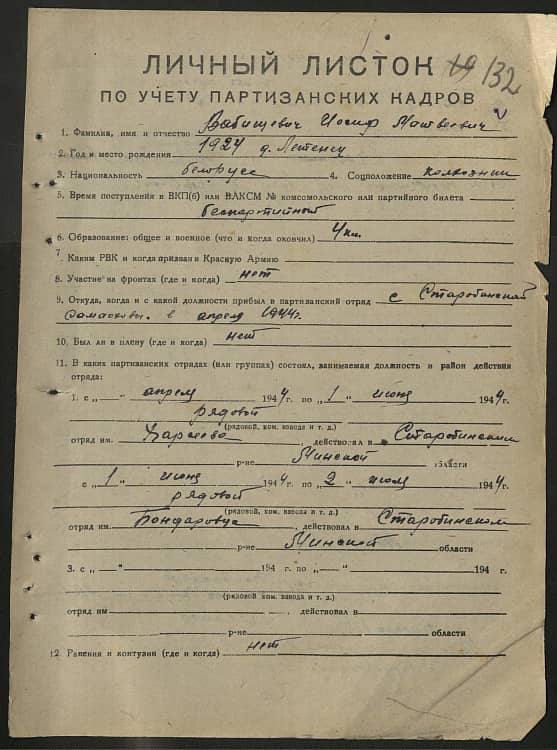 ЛИЧНЫЙ ЛИСТОК 132
ПО УЧЕТУ ПАРТИЗАНСКИХ КАДРОВ
1. Фамилия, имя и отчество Бабищевич Иосиф Матвеевич
2. Год и место рождения 1924 д.
3. Национальность белорус 4. Соцположение колхозник
5. Время поступления в ВКП(б) или ВЛКСМ № комсомольского или партийного билета
беспартийный
6. Образование: общее и военное (что и когда окончил) 4 кл.
7. Каким РВК и когда призван в Красную Армию
8. Участие на фронтах (где и когда) нет
9. Откуда, когда и с какой должности прибыл в партизанский отряд с Старобинской
в апреле 1944г.
10. Был ли в плену (где и когда) нет
11. В каких партизанских отрядах (или группах) состоял, занимаемая должность и район действия
отряда:
1. с „ “ апреля 1944 г. по „1“ июня 1944 г.
рядовой
(рядовой, ком. взвода и т. д.)
отряд им. , действовал в Старобинском
р-не Минской области
с „1“ июня 1944 г. по „2“ июля 1944 г.
рядовой
(рядовой, ком. взвода и т. д.)
отряд им. Бондаровца, действовал в Старобинском
р-не Минской области
3. с „ “ 194 г. по „ “ 194 г.
(рядовой, ком. взвода и т. д.)
отряд им , действовал в
р-не области
12. Ранения и контузии (где и когда) нет